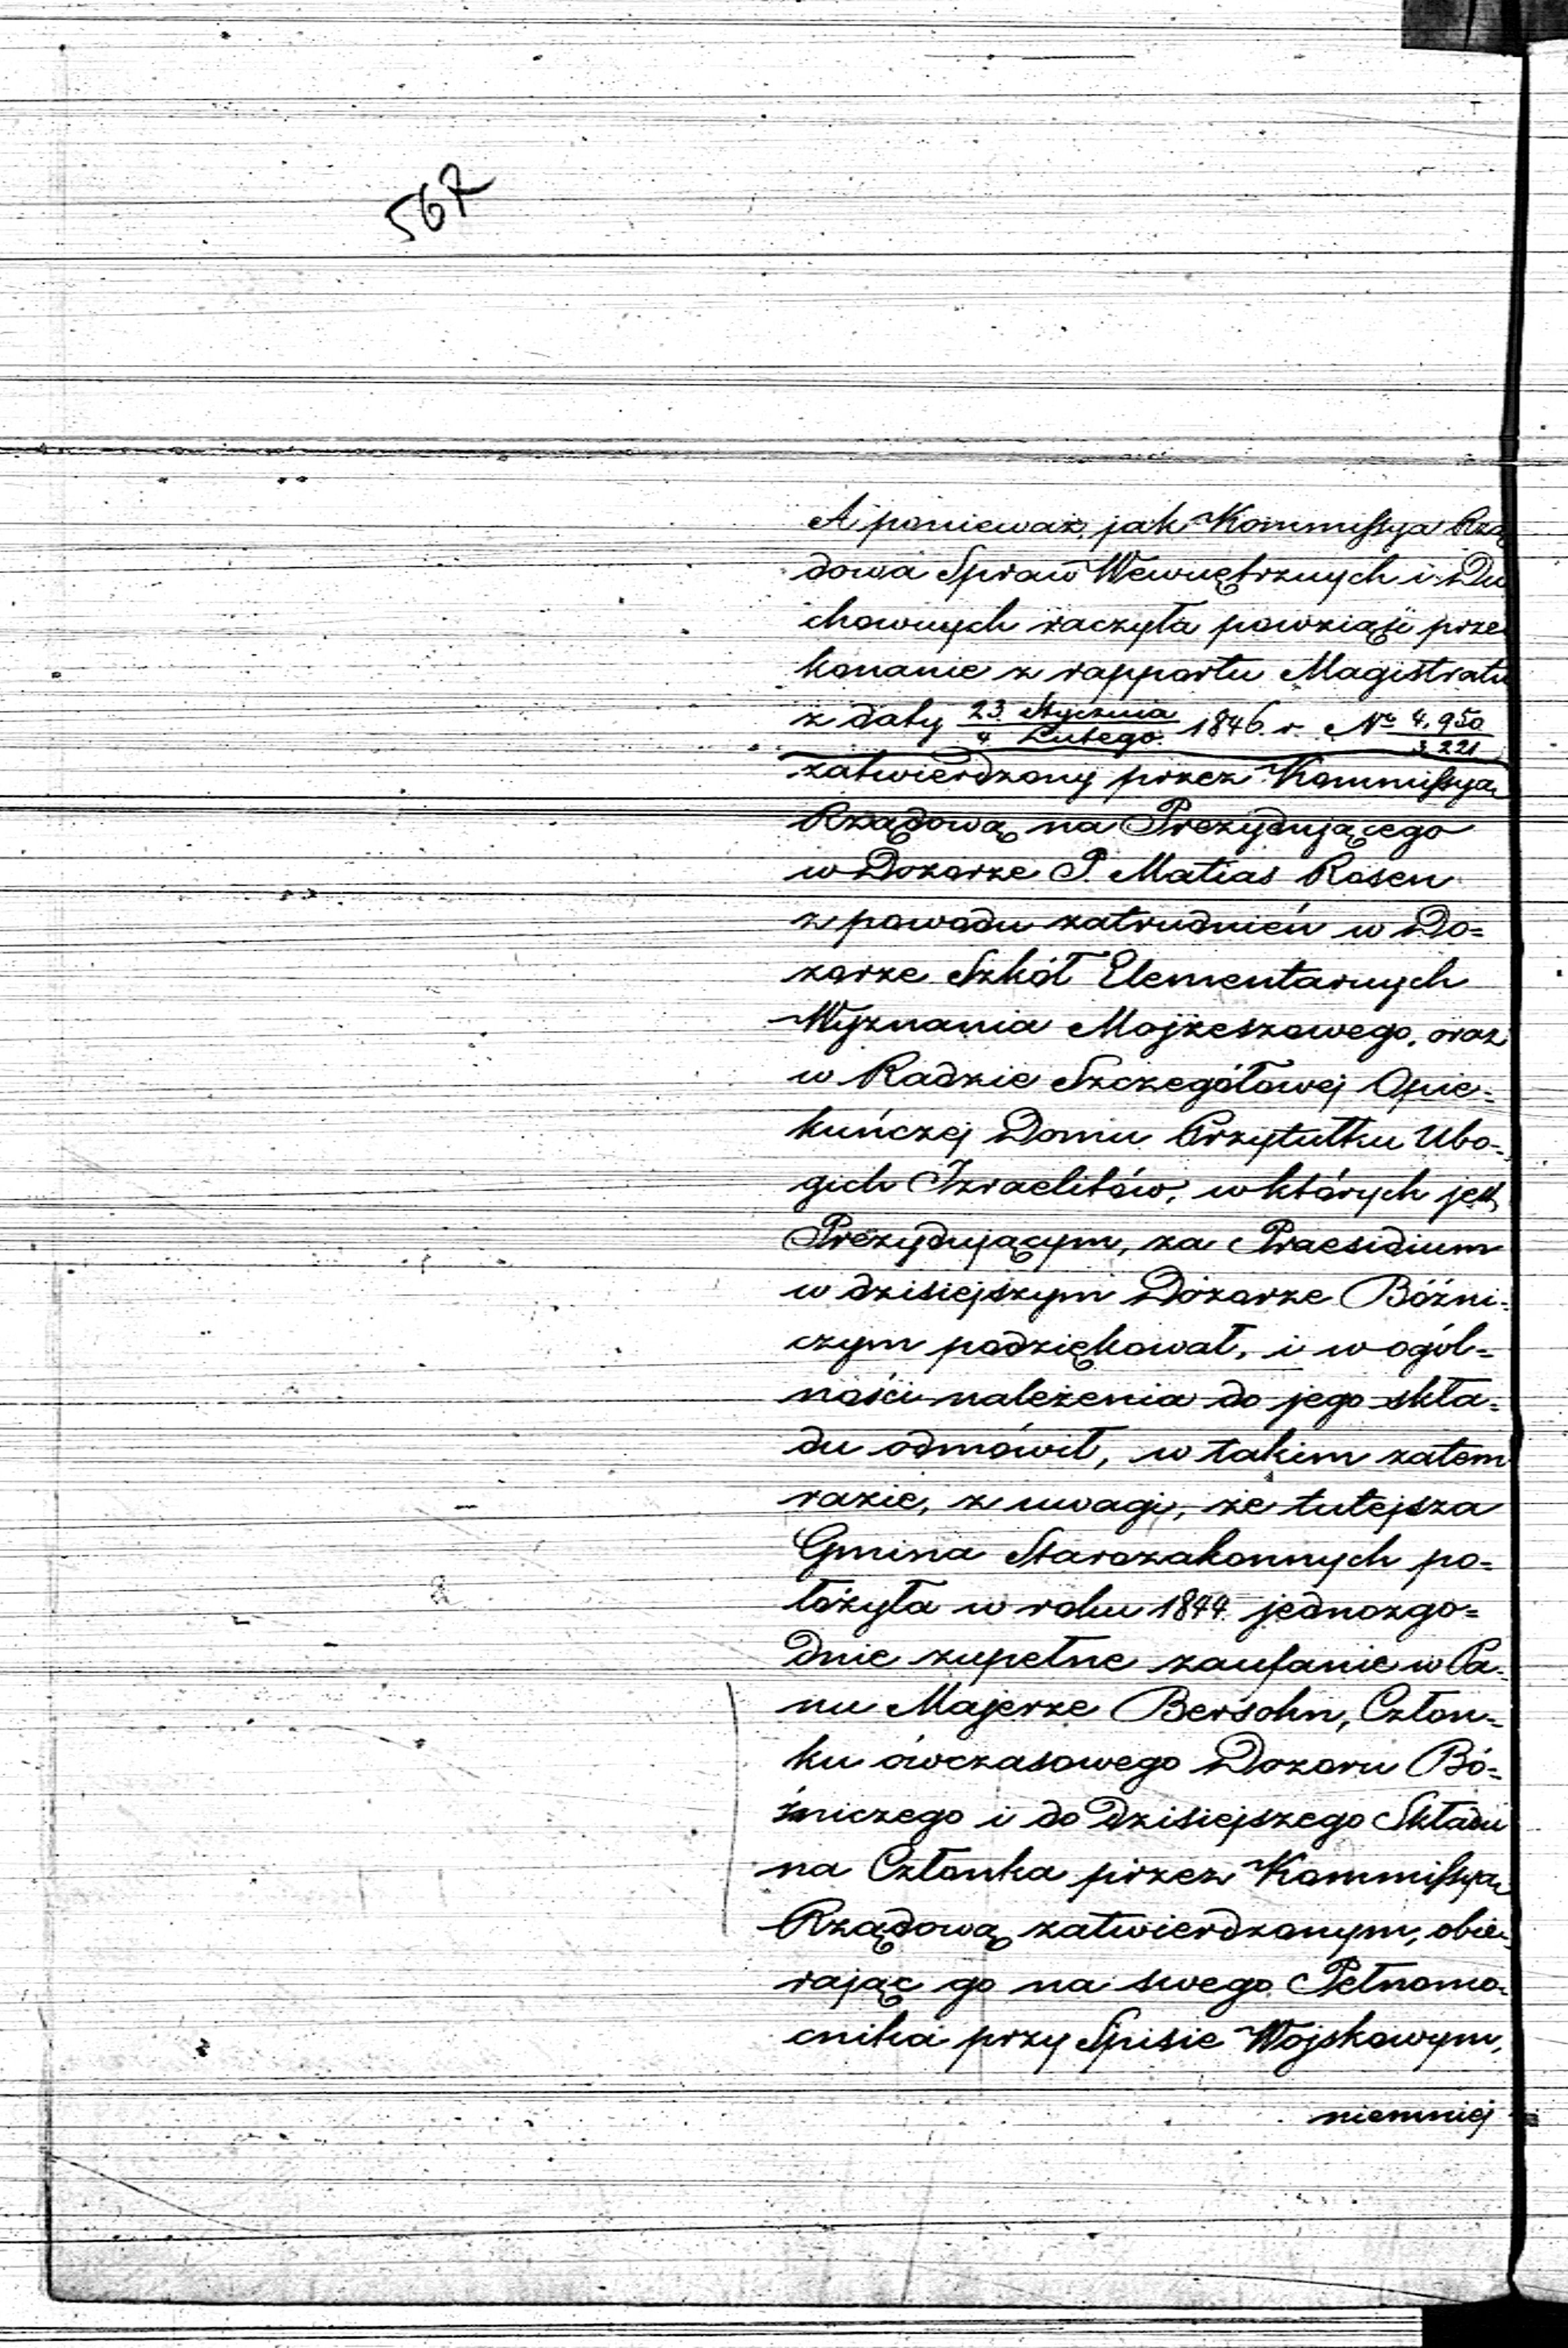 567
A ponieważ, jak Kommissya Rzą
dowa Spraw Wewnętrznych i Du
chownych raczyła powziąść prze
konanie z rapportu Magistratu
z daty 23 Stycznia / 4 Lutego 1846 r. No 4.950 / 3.221
zatwierdzony przez Kommissyą
Rządową na Prezydującego
w Dozorze P. Matias Rosen
z powodu zatrudnień w Do=
zorze Szkół Elementarnych
Wyznania Mojżeszowego, oraz
w Radzie Szczegółowej Opie=
kuńczej Domu Przytułku Ubo=
gich Izraelitów, w których jest
Prezydującym, za Praesidium
w dzisiejszym Dozorze Bóżni=
czym podziękował, i w ogól=
ności należenia do jego skła=
du odmówił, w takim zatem
razie, z uwagi, że tutejsza
Gmina Starozakonnych po=
łożyła w roku 1844 jednozgo=
dnie zupełne zaufanie w Pa=
nu Majerze Bersohn, Człon=
ku ówczasowego Dozoru Bó=
źniczego i do dzisiejszego Składu
na Członka przez Kommissyą
Rządową zatwierdzonym, obie=
rając go na swego Pełnomo=
cnika przy Spisie Wojskowym,
niemniej